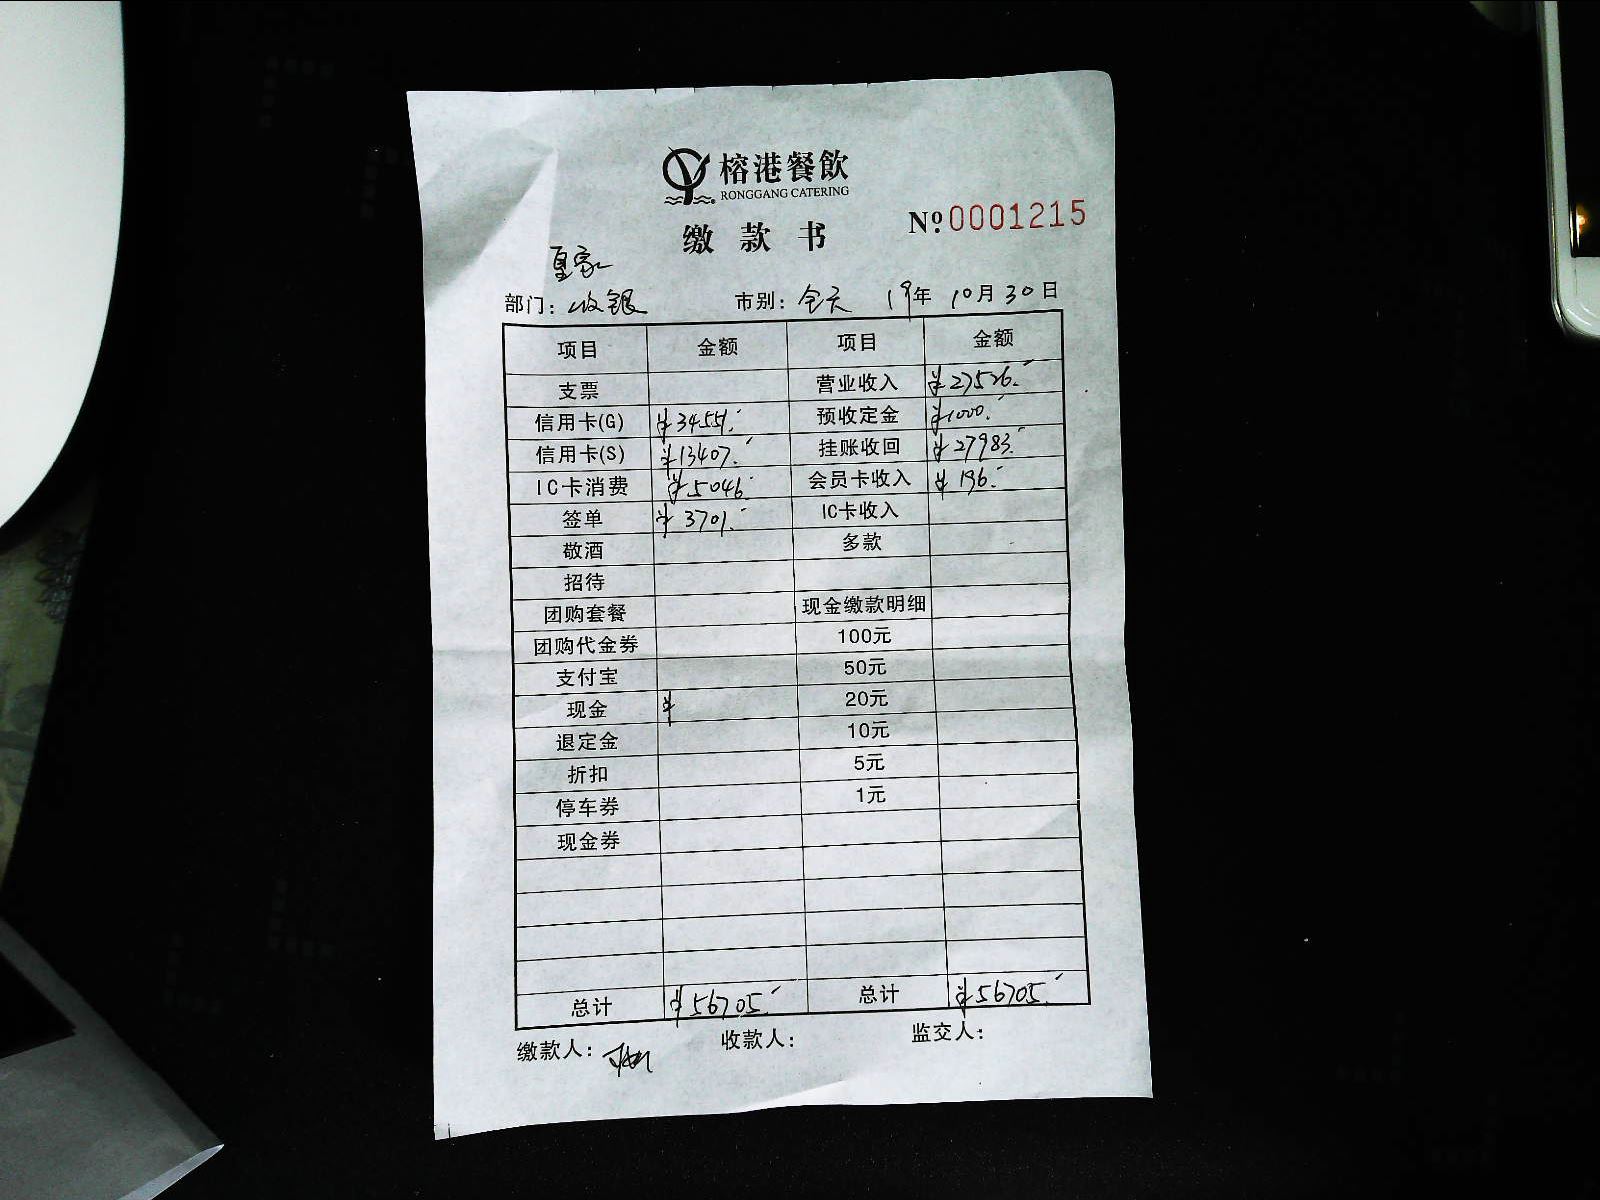 榕港餐飲
RONGGANG CATERING
缴款书 Nº:0001215
皇家
部门: 收银 市别: 全天 19年 10月 30日
项目 金额 项目 金额
支票 营业收入 ¥27526.-
信用卡(G) ¥34551.- 预收定金 ¥1000.-
信用卡(S) ¥13407.- 挂账收回 ¥27983.-
IC卡消费 ¥5046.- 会员卡收入 ¥196.-
签单 ¥3701.- IC卡收入
敬酒 多款
招待
团购套餐 现金缴款明细
团购代金券 100元
支付宝 50元
现金 ¥ 20元
退定金 10元
折扣 5元
停车券 1元
现金券
总计 ¥56705.- 总计 ¥56705.-
缴款人: 收款人: 监交人: